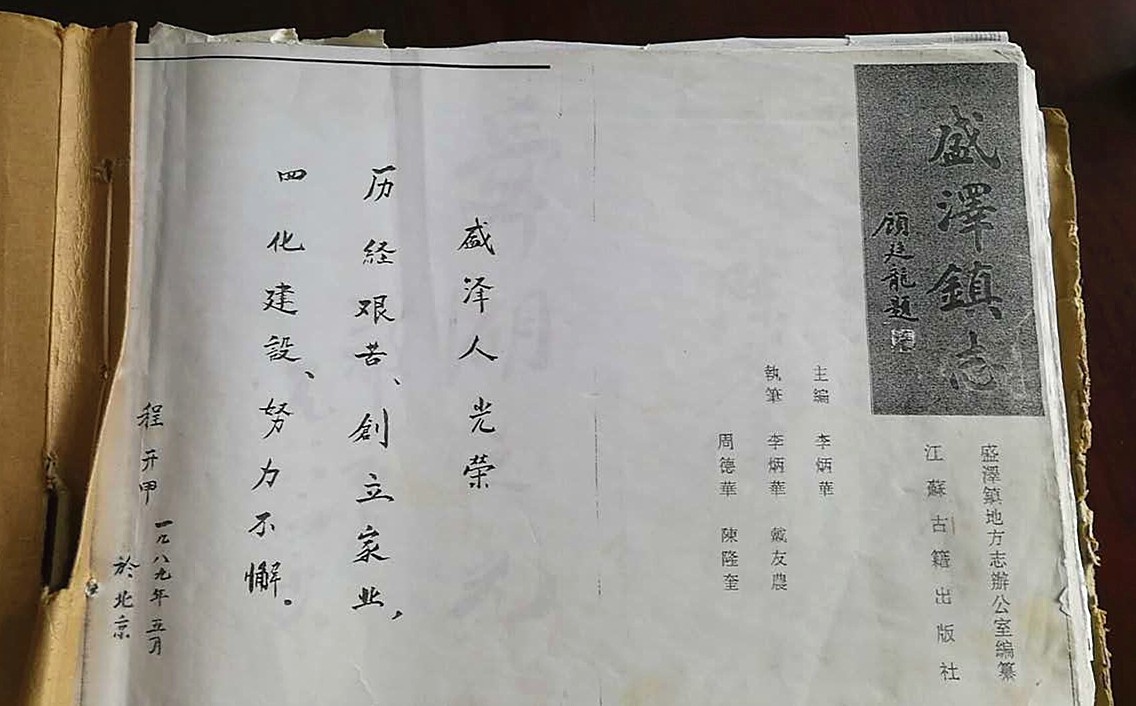 盛澤鎮志
顧廷龍題
盛澤鎮地方志辦公室編纂
江蘇古籍出版社
主编 李炳華
執筆 李炳華 戴友農
周德華 陳隆奎
盛泽人光荣
历经艰苦、创立家业，
四化建設、努力不懈。
程开甲
一九八九年五月
於北京